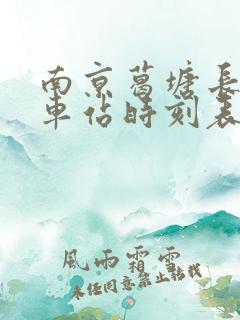 南京葛塘长
车站时刻表
風雨霜雪
未经同意禁止转载